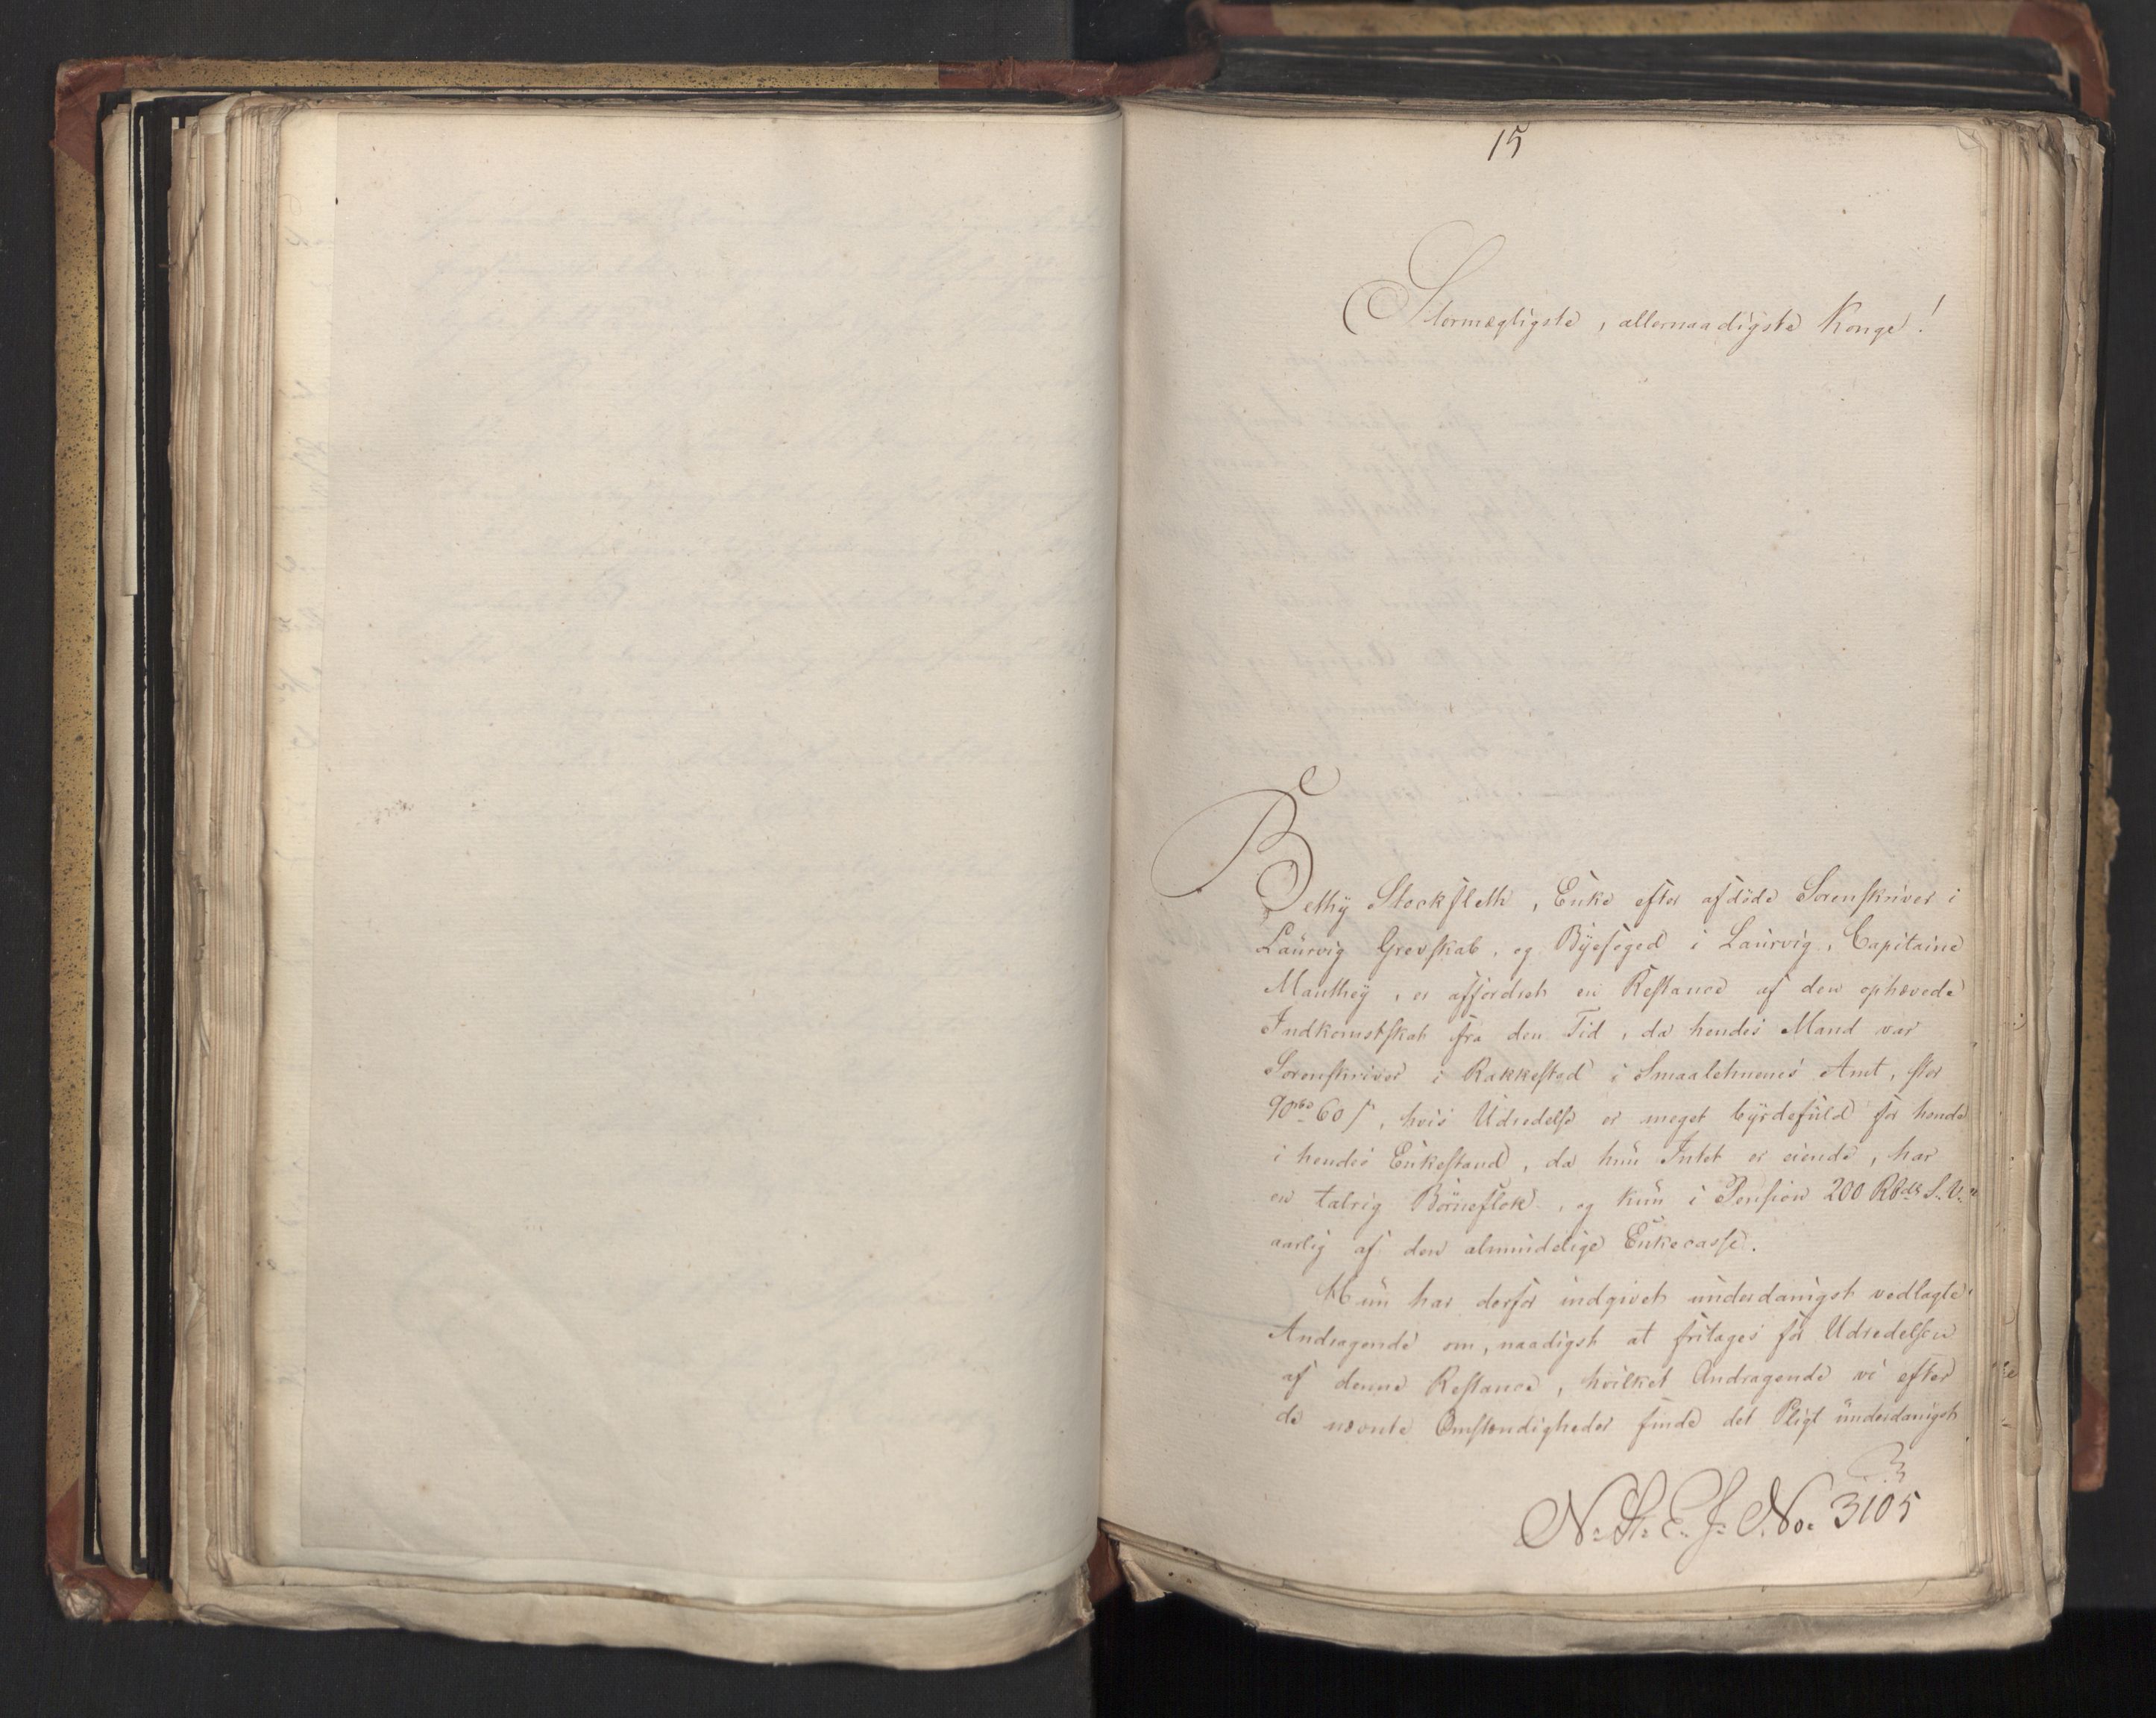 15
Stormægtigste, allernaadigste Konge!
Bethy Stockfleth, Enke efter afdöde Sorenskriver i
Laurvig Grevskab, og Byefoged i Laurvig, Capitaine
Manthey, er affordret en Restance af den ophævede
Indkomstskat fra den Tid, da hendes Mand var
Sorenskriver i Rakkestad i Smaalehnenes Amt, stor
90 60 s, hvis Udredelse er meget byrdefuld for hende
i hendes Enkestand, da hun Intet er eiende, har
en talrig Börneflok, og kun i Pension 200 Rbdlr S.V.
aarlig af den almindelige Enkecasse.
Hun har derfor indgivet underdanigst vedlagte
Andragende om, naadigst at fritages for Udredelsen
af denne Restance, hvilket Andragende vi efter
de nævnte Omstændigheder finde det Pligt underdanigst
N. St. E. J. No. 3105